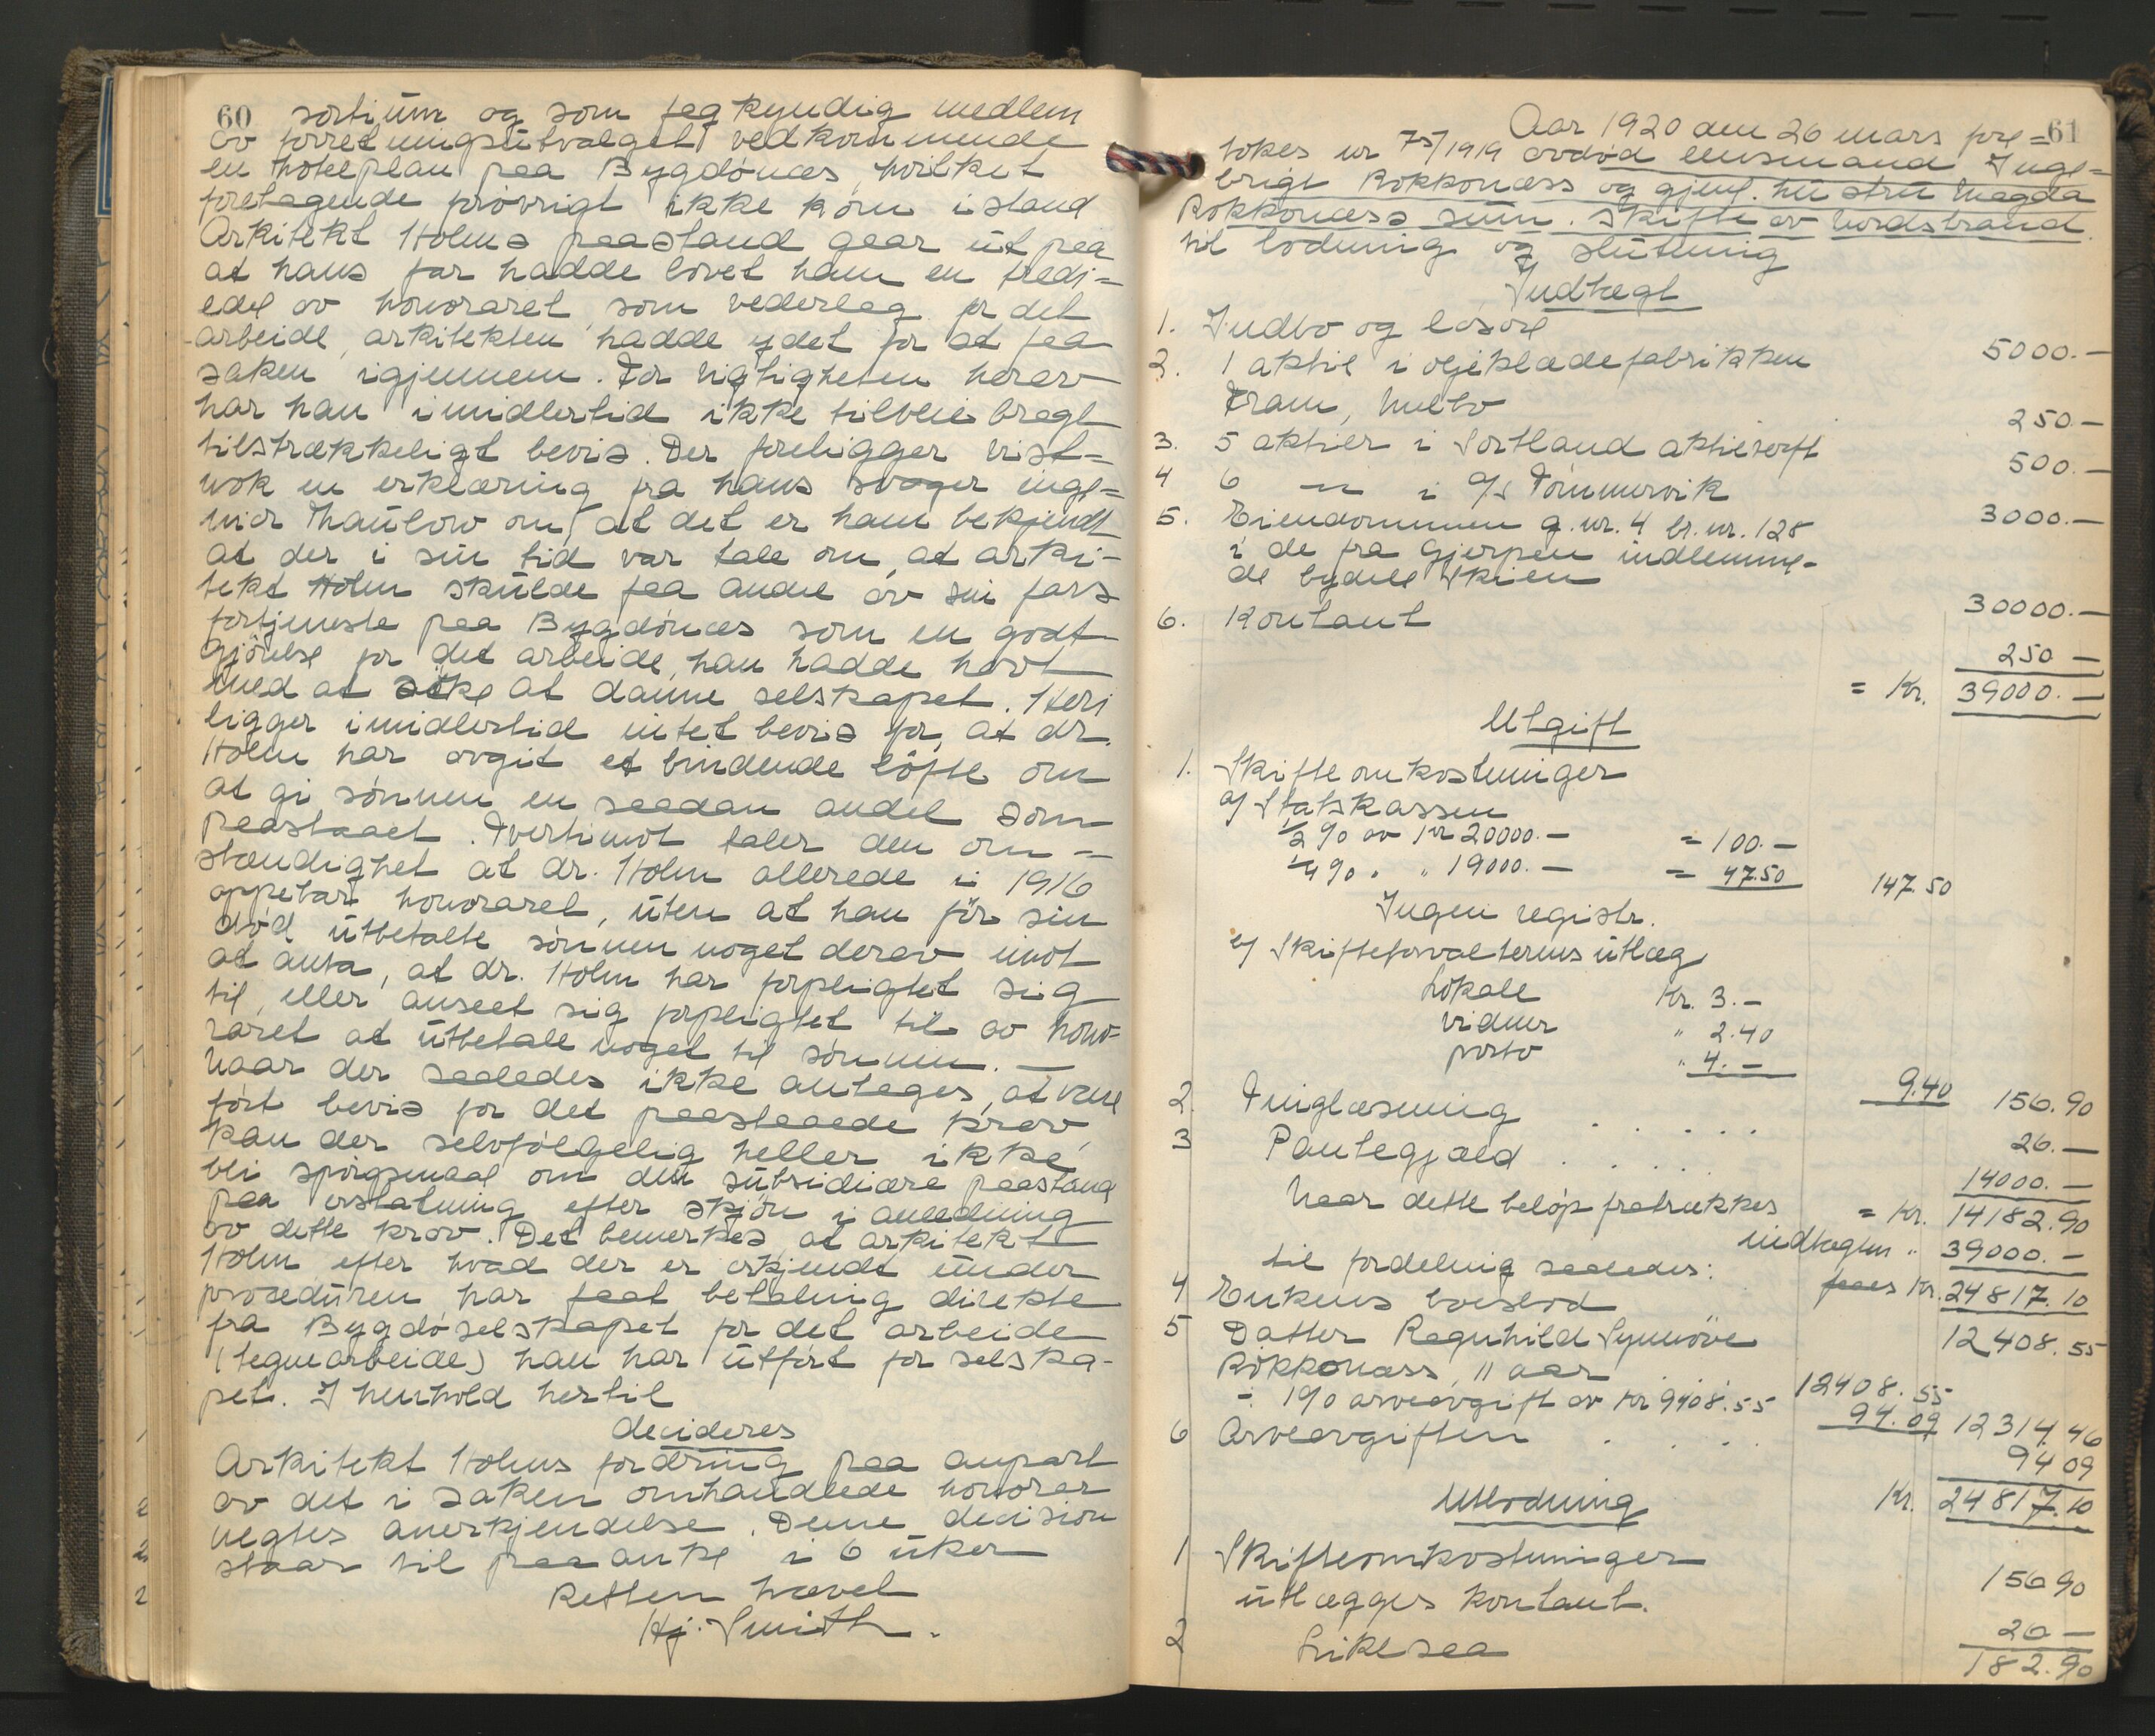 60 sortium og som fagkyndig medlem
av forretningsutvalget vedkommende
en hotelplan paa Bygdönæs, hvilket
foretagende forøvrigt ikke kom istand
Arkitekt Holms paastand gaar ut paa
at hans far hadde lovet ham en tredi=
edel av honoraret som vederlag for det
arbeide, arkitekten hadde ydet for at faa
saken igjennem. For rigtigheten herav
har han imidlertid ikke tilveiebragt
tilstrækkeligt bevis. Der foreligger vist=
nok en erklæring fra hans svoger inge=
niør Thaulow om, at det er ham bekjendt
at der i sin tid var tale om, at arki-
tekt Holm skulde faa andel av sin fars
fortjeneste paa Bygdönæs som en godt
gjörelse for det arbeide, han hadde havt
med at söke at danne selskapet. Heri
ligger imidlertid intet bevis for, at dr.
Holm har avgit et bindende löfte om
at gi sönnen en saadan andel som
paastaaet. Tvertimot taler den om=
stændighet at dr. Holm allerede i 1916
oppebar honoraret, uten at han för sin
död utbetalte sönnen noget derav imot
at anta, at dr. Holm har forpligtet sig
til, eller anseet sig forpligtet til av hono=
raret at utbetale noget til sönnen. —
Naar der saaledes ikke antages, at være
fört bevis for det paastaaede krav,
kan der selvfölgelig heller ikke
bli spörgsmaal om den subsidiære paastand
paa erstatning efter skjön i anledning
av dette krav. Det bemerkes, at arkitekt
Holm efter hvad der er erkjendt under
proceduren har faat betaling direkte
fra Bygdöselskapet for det arbeide
(tegnearbeide) han har utfört for selska-
pet. I henhold hertil
decideres
Arkitekt Holms fordring paa anpart
av det i saken omhandlede honorar
negtes anerkjendelse. Denne decision
staar til paaanke i 6 uker
Retten hævet
Hj. Smith.
Aar 1920 den 26 mars fore= 61
tokes nr 75/1919 avdöd lensmand Inge=
brigt Rokkonæss og gjenl. hustru Magda
Rokkonæss sum. skifte av Nordstrand
til lodning og slutning
Indtægt
1. Indbo og lösöre 5000.—
2. 1 aktie i oljeklædefabrikken
Fram, Melbo 250.—
3. 5 aktier i Sortland aktieverft 500.—
4 6 —"— i A/S Tömmervik 3000.—
5. Eiendommen g.nr. 4 br.nr. 128
i de fra Gjerpen indlemme-
de bydele Skien 30000.—
6. Kontant 250 —
= Kr. 39000.—
Utgift
1. Skifteomkostninger
a/ Statskassen
1/2 % av Kr 20000.— = 100.—
1/4 % " " 19000.— = 47.50 147.50
Ingen registr.
b/ Skifteforvalterens utlæg
Lokale Kr. 3.—
vidner " 2.40
porto " 4.— 9.40 156.90
2. Tinglæsning . . . . . 26.—
3 Pantegjæld . . . . 14000.—
= Kr. 14182.90
Naar dette belöp fratrækkes
indtægten " 39000.—
faaes Kr. 24817.10
til fordeling saaledes:
4 Enkens boeslod 12408.55
5 Datter Ragnhild Synnöve
Rökkonæss, 11 aar 12408.55
÷ 1 % arveavgift av Kr 9408.55 94.09 12314.46
6 Arveavgiften . . . . 94 09
Kr. 24817.10
Utlodning
1 Skifteomkostninger
utlægges kontant. 156 90
2 Likesaa 26 —
182.90